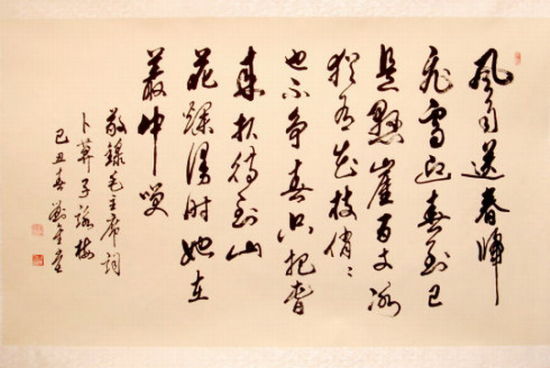 風雨送春歸
飛雪迎春到已
是懸崖百丈冰
猶有花枝俏々
也不争春只把春
來报待到山
花爛漫时她在
叢中咲
敬錄毛主席词
卜算子詠梅
己丑春